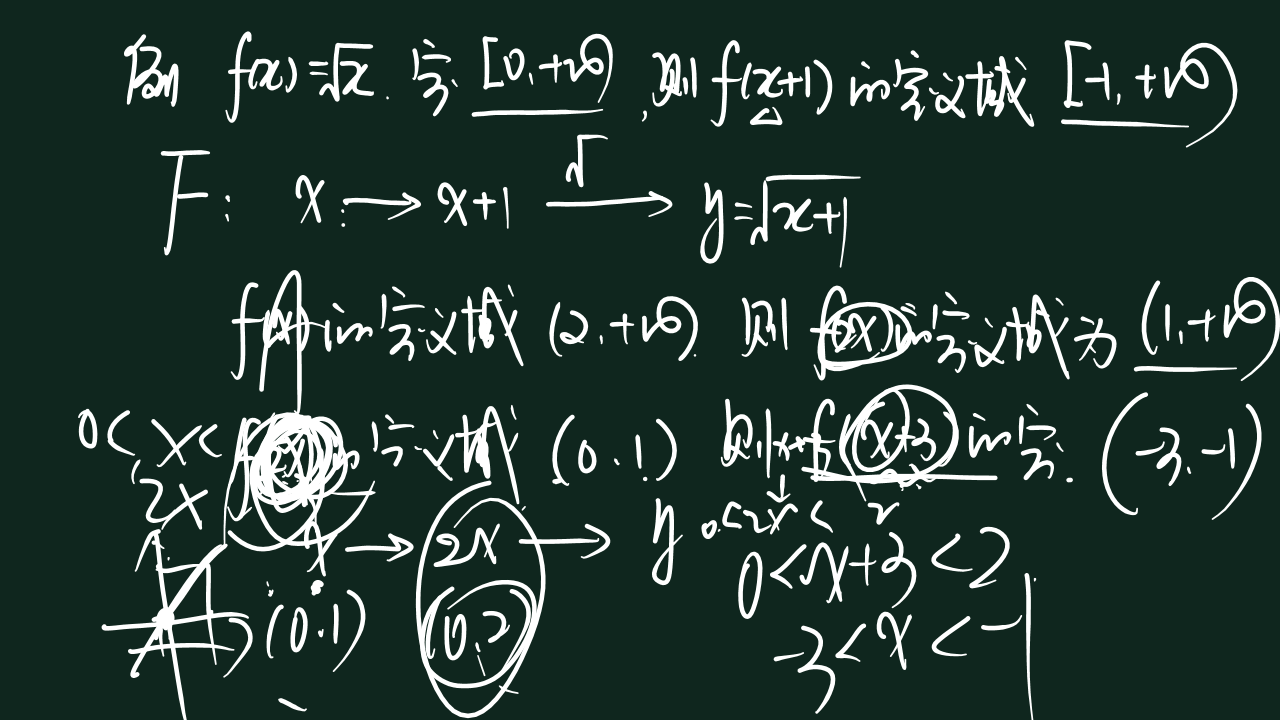 f(x)=√x. 定 [0,+∞), 则 f(x+1) 的定义域 [-1,+∞)
F: x → x+1 √→ y=√x+1
f(x) 的定义域 (2,+∞) 则 f(2x) 的定义域为 (1,+∞)
0< x< f(2x) 的定义域 (0.1) 则 f(x+3) 的定. (-3,-1)
2x x → 2x → y 0<2x<2
0<x+3<2
(0.1) (0,2)
-3<x<-1